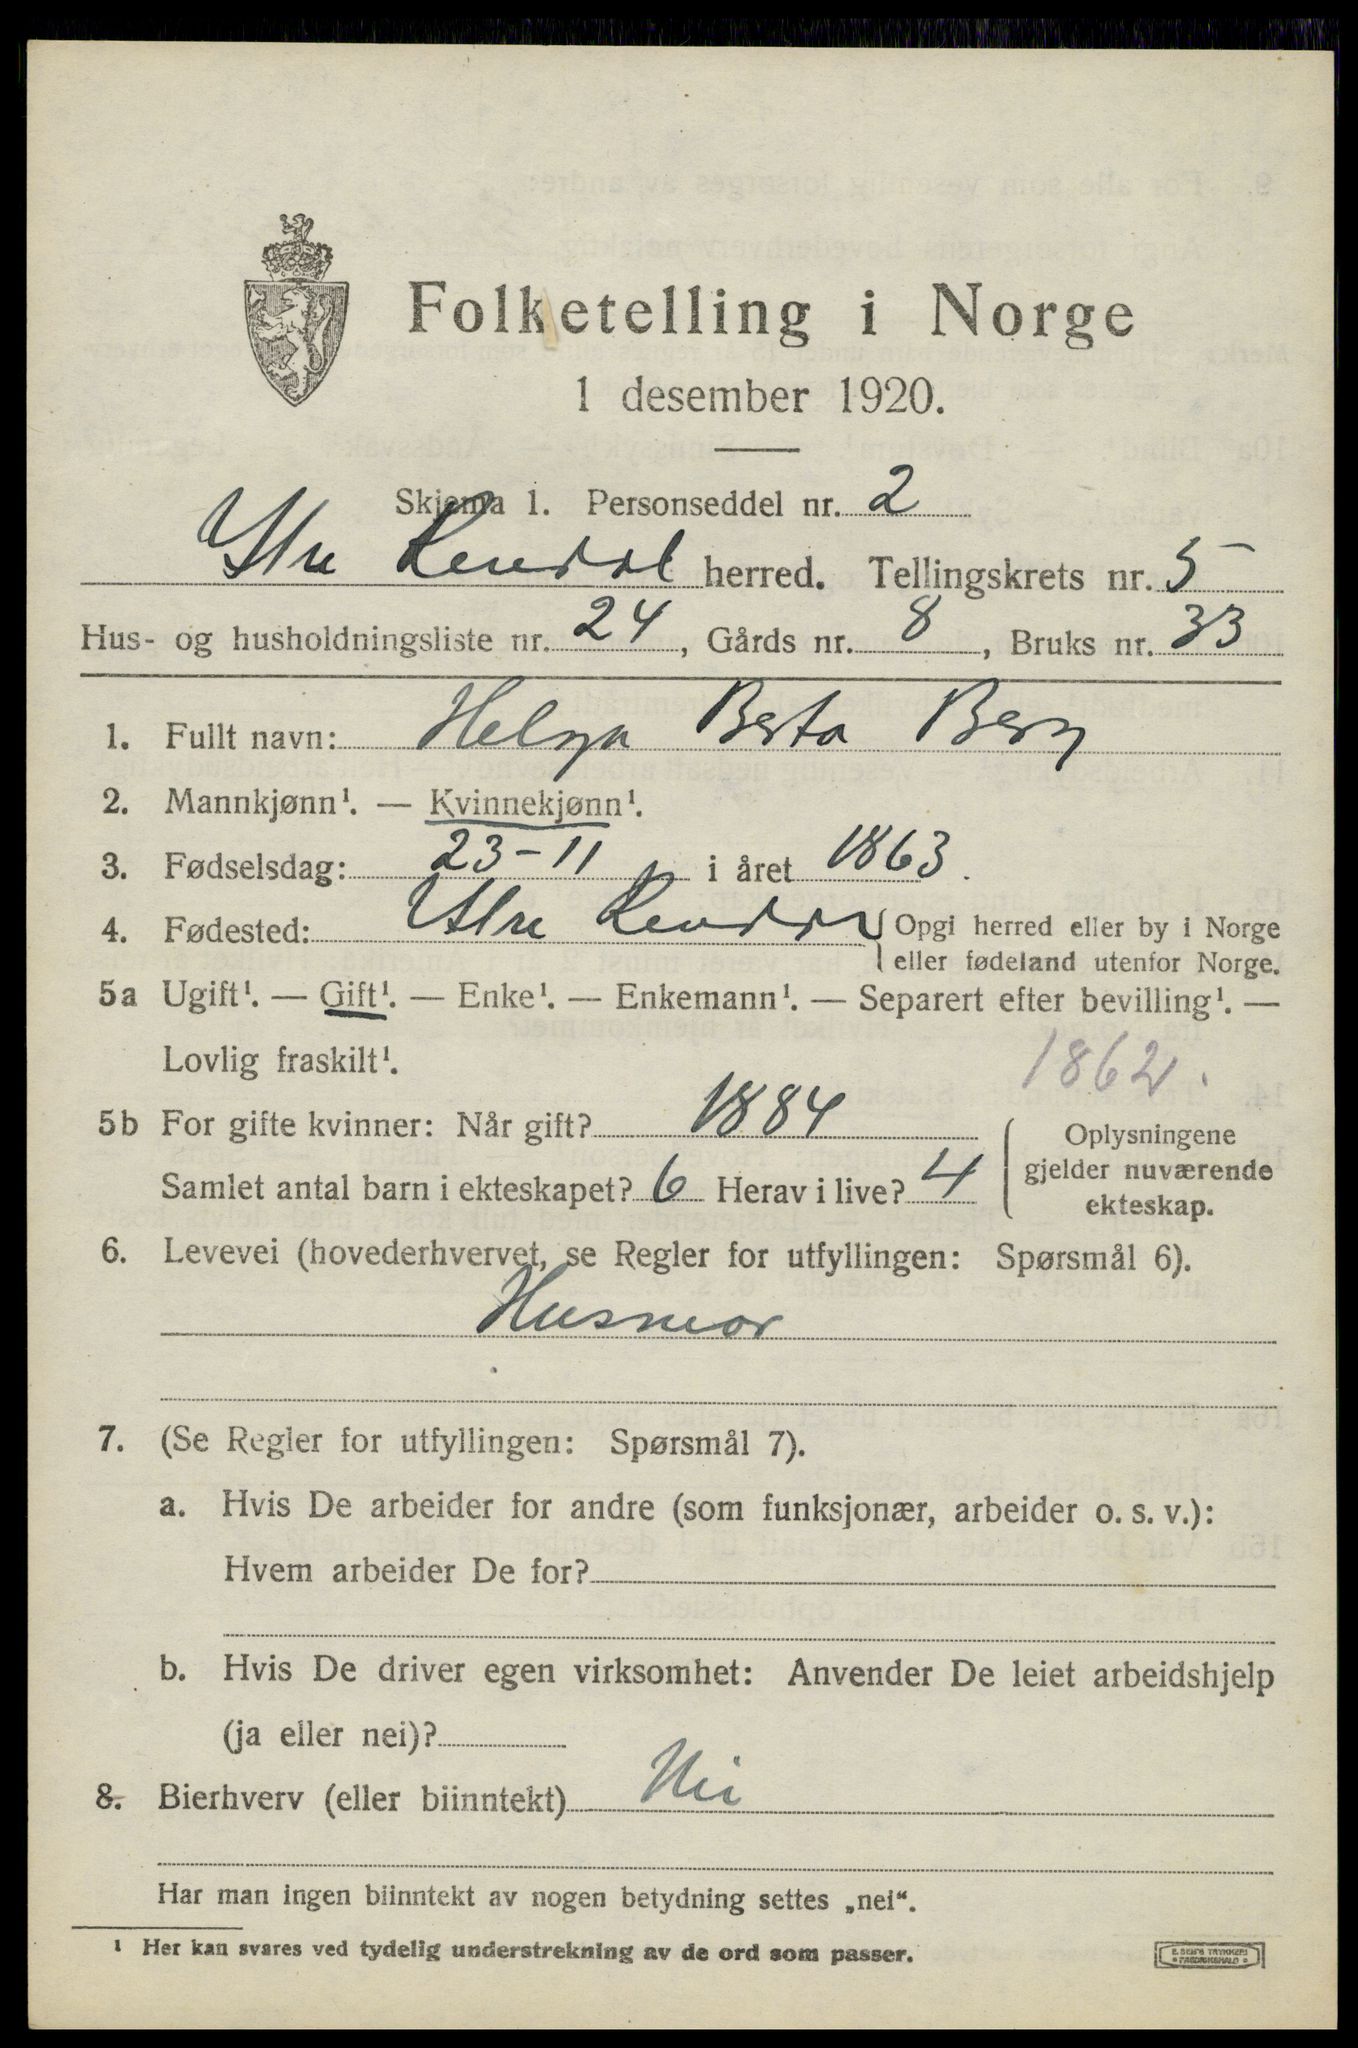 Folketelling i Norge
1 desember 1920.
Skjema 1. Personseddel nr. 2
Ytre Rendal herred. Tellingskrets nr. 5
Hus- og husholdningsliste nr. 24, Gårds nr. 8, Bruks nr. 33
1. Fullt navn: Helga Berta Berg
2. Mannkjønn¹. — Kvinnekjønn¹.
3. Fødselsdag: 23-11 i året 1863.
4. Fødested: Ytre Rendal { Opgi herred eller by i Norge
eller fødeland utenfor Norge.
5a Ugift¹. — Gift¹. — Enke¹. — Enkemann¹. — Separert efter bevilling¹. —
Lovlig fraskilt¹.
1862.
5b For gifte kvinner: Når gift? 1884
Samlet antal barn i ekteskapet? 6 Herav i live? 4
Oplysningene
gjelder nuværende
ekteskap.
6. Levevei (hovederhvervet, se Regler for utfyllingen: Spørsmål 6).
Husmor
7. (Se Regler for utfyllingen: Spørsmål 7).
a. Hvis De arbeider for andre (som funksjonær, arbeider o. s. v.):
Hvem arbeider De for?
b. Hvis De driver egen virksomhet: Anvender De leiet arbeidshjelp
(ja eller nei)?
8. Bierhverv (eller biinntekt) Nei
Har man ingen biinntekt av nogen betydning settes „nei“.
¹ Her kan svares ved tydelig understrekning av de ord som passer.